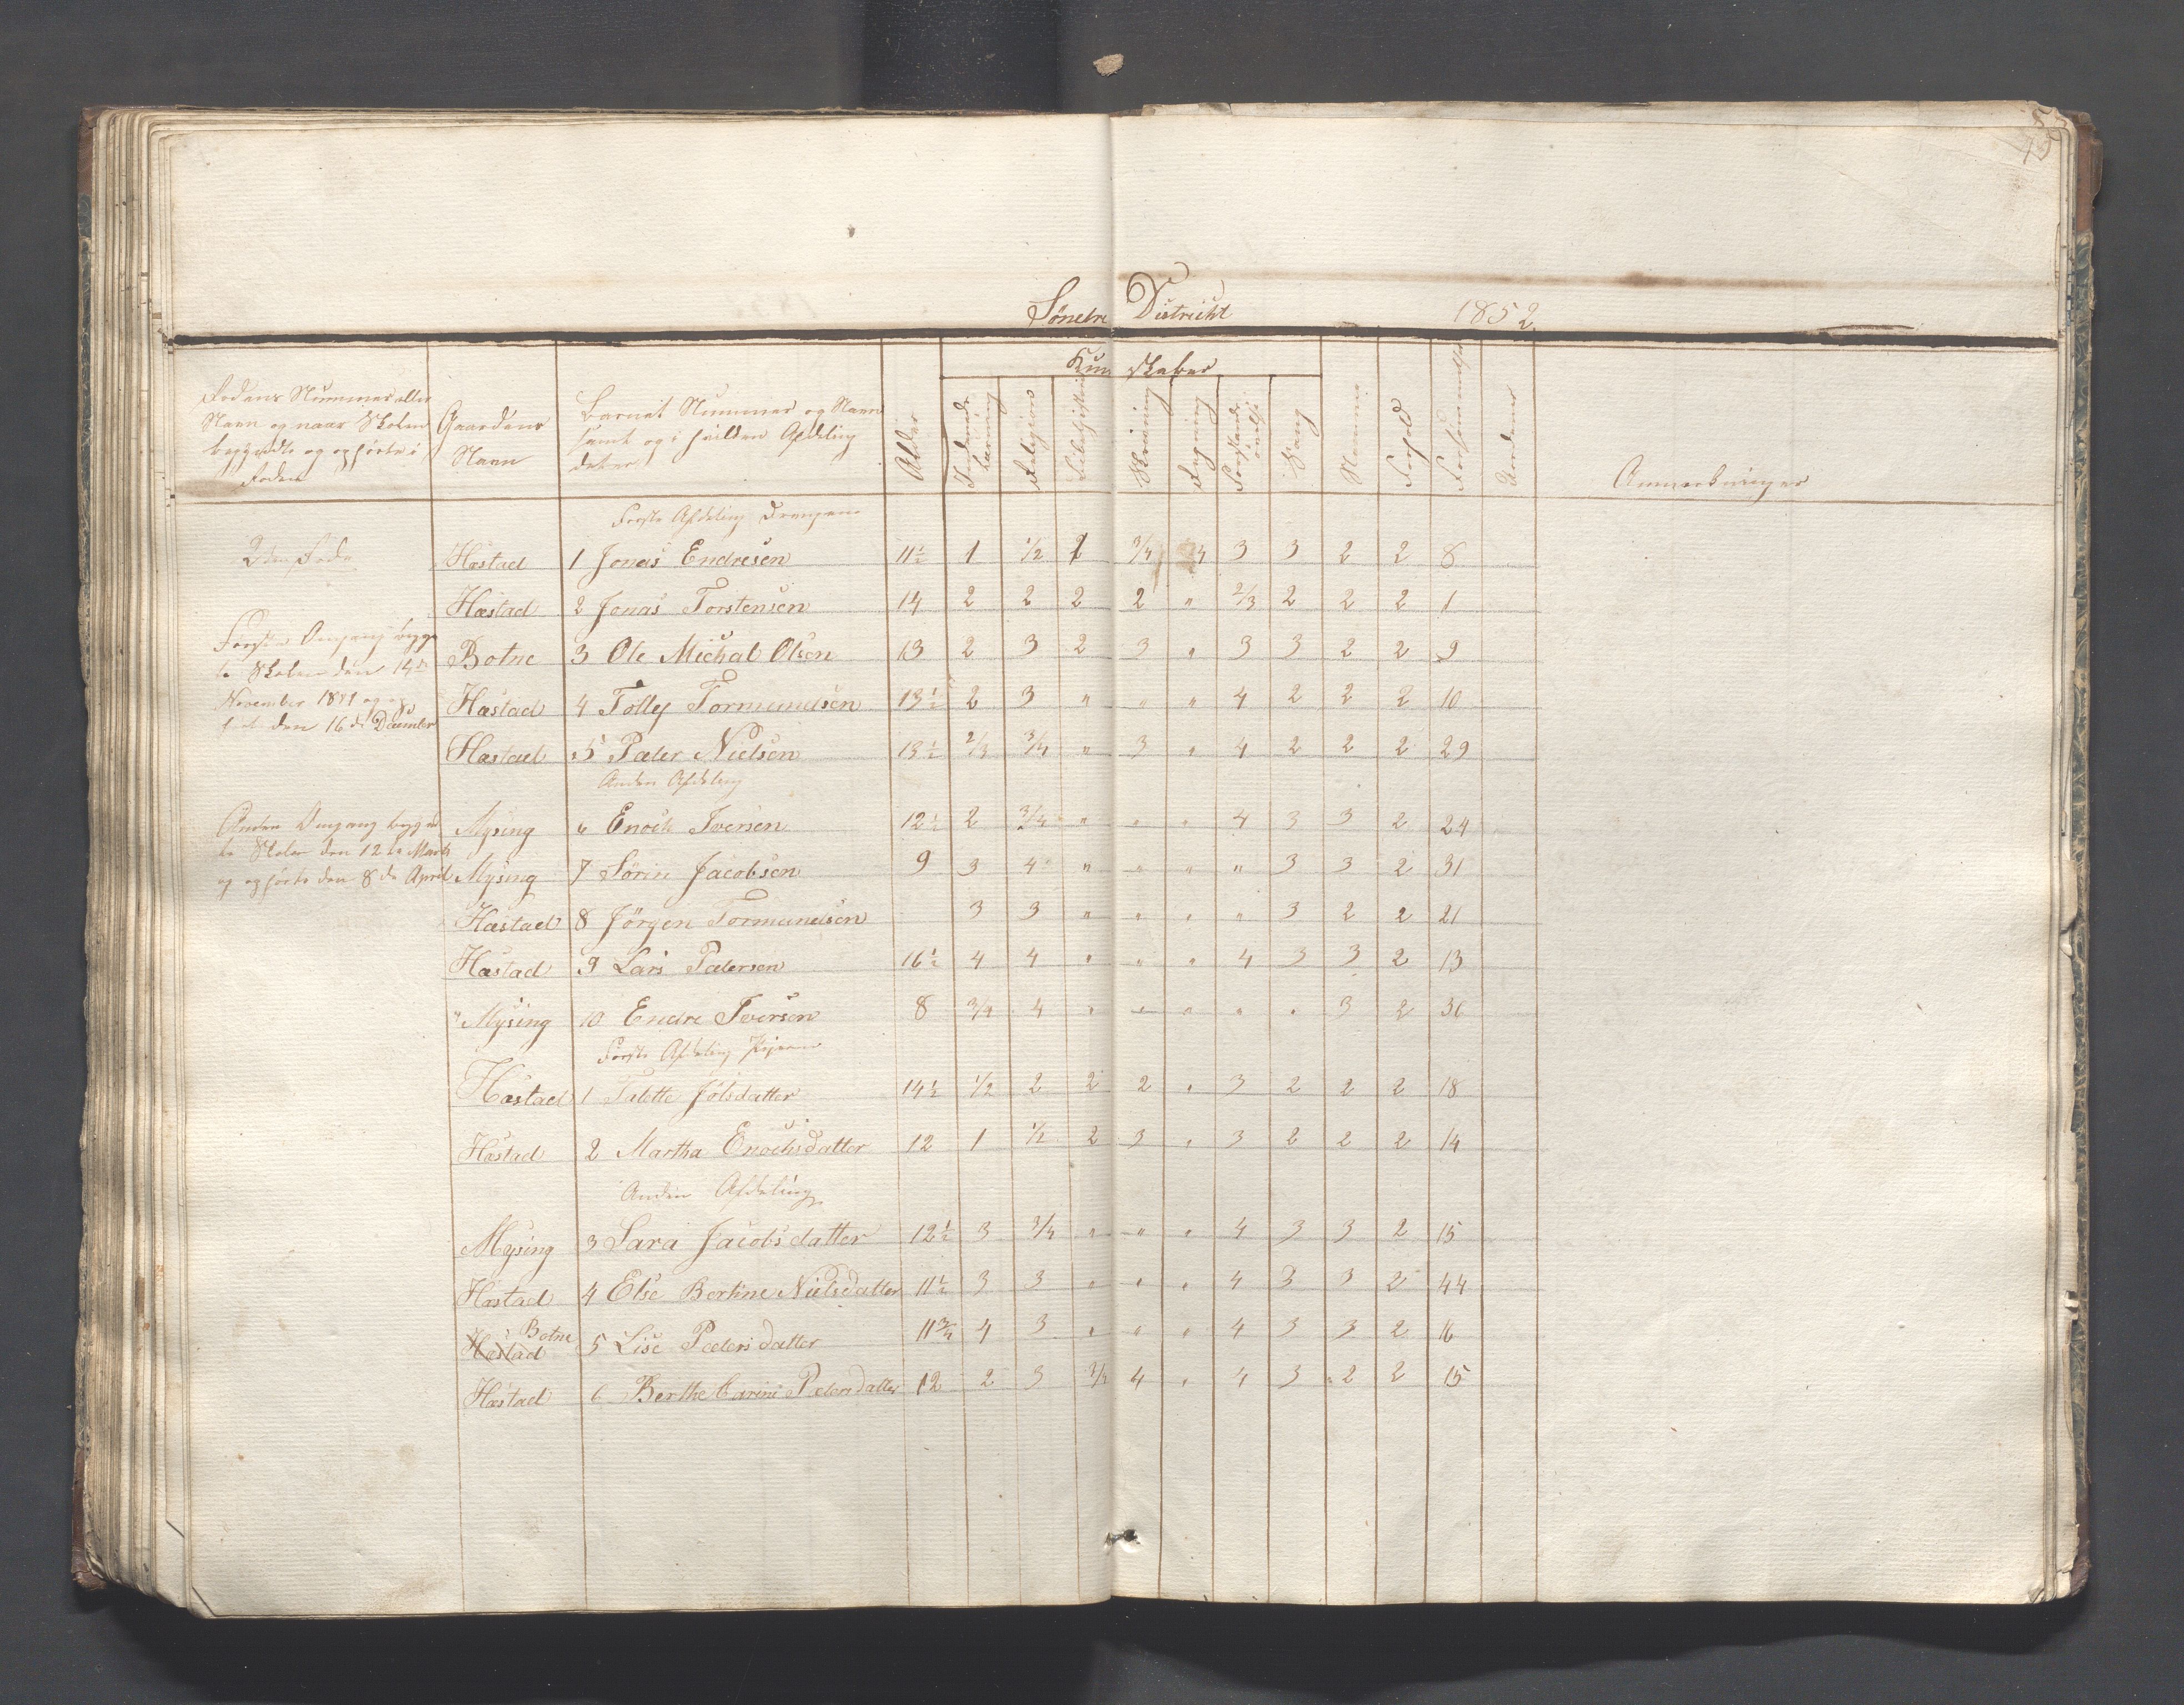 Søndre District 1852
Kundskaber
Rodens Nummer eller
Navn og naar Skolen
begyndte og ophørte i
Roden
Gaardens
Navn
Barnets Nummer og Navn
samt og i hvilken Afdeling
det er
Alder
Religion
Skrivning
Regning
Sang
Nemme
Forhold
Forsømmelser
Anmærkninger
Første Afdeling Drengene
2den Rode
Hæstad 1 Jonas Endresen 11½ 1 1/2 3/4 3 3 2 2 8
Hæstad 2 Jonas Torstensen 14 2 2 2 2 " 2/3 2 2 2 1
Første Omgang begyn
te Skolen den 14de
November 1851 og op
den 16de December
Botne 3 Ole Michal Olsen 13 2 3 2 3 " 3 3 2 2 9
Hæstad 4 Tolly Tormundsen 13½ 2 3 " " " 4 2 2 2 10
Hæstad 5 Pæder Nielsen 13½ 2/3 3/4 " 3 " 4 2 2 2 29
Anden Afdeling
Anden Omgang begyn
te Skolen den 12te Marts
og ophørte den 8de April
Mysing 6 Enoch Iversen 12½ 2 3/4 " " " 4 3 3 2 24
Mysing 7 Sørin Jacobsen 9 3 4 " " " " 3 3 2 31
Hæstad 8 Jörgen Tormundsen 3 3 " " " " 3 2 2 21
Hæstad 9 Lars Pædersen 16½ 4 4 " " " 4 3 3 2 13
Mysing 10 Endre Iversen 8 3/4 4 " " " " " 3 2 36
Første Afdeling Pigerne
Hæstad 1 Talette Jølsdatter 14½ 1/2 2 2 2 " 3 2 2 2 18
Hæstad 2 Martha Enochsdatter 12 1 1/2 2 3 " 3 2 2 2 14
Anden Afdeling
Mysing 3 Sara Jacobsdatter 12½ 3 3/4 " " " 4 3 3 2 15
Hæstad 4 Else Bertine Nielsdatter 11½ 3 3 " " " 4 3 3 2 44
Botne
Hæstad 5 Lise Pædersdatter 11¾ 4 3 " " " 4 3 3 2 16
Hæstad 6 Berthe Carine Pedersdatter 12 2 3 3/4 4 " 4 3 2 2 15